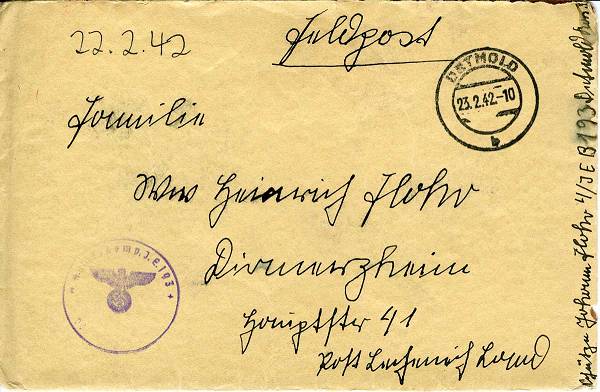 22.2.42
Feldpost
DETMOLD
23.2.42-10
b
Familie
Ww Heinrich Flohr
Dirmerzheim
Hauptstr 41
Post Lechenich Land
J.E.193
Schütze Johann Flohr 4/JEB 193 Detmold